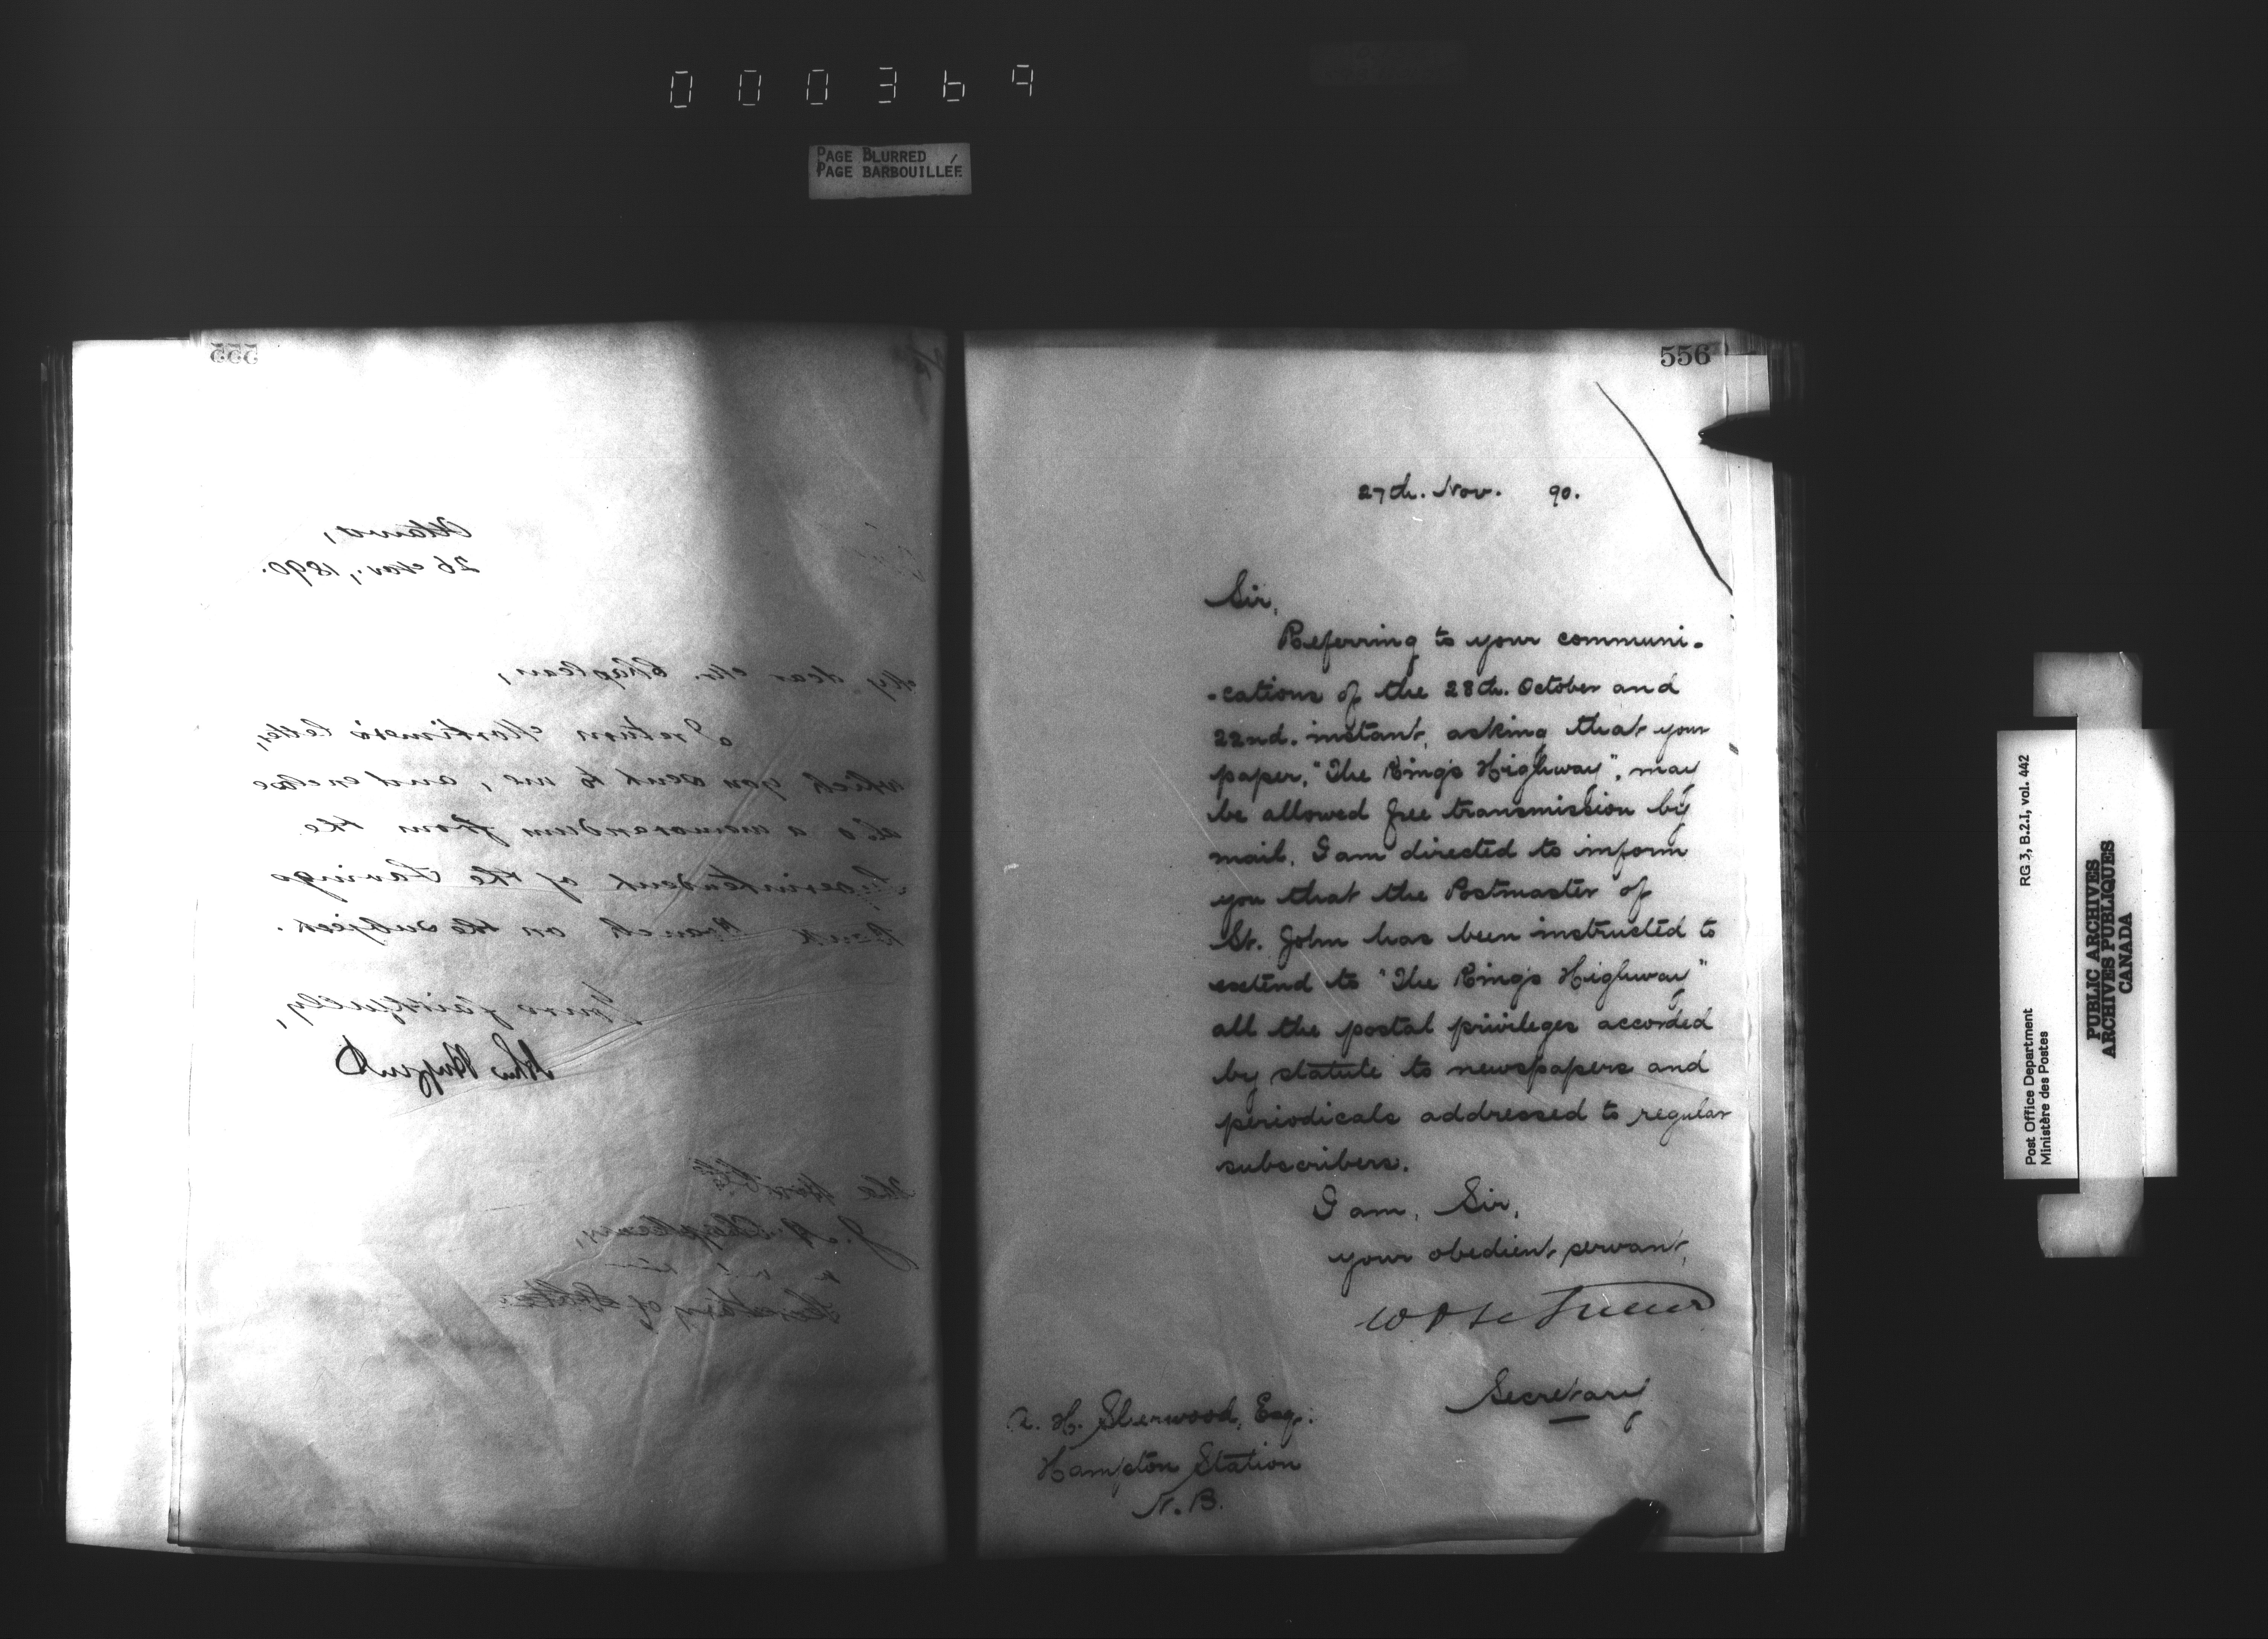 000369
PAGE BLURRED
PAGE BARBOUILLÉE
555
Ottawa,
26 Nov., 1890.
My dear Mr. Chapleau,
I return Mortimer's letter,
which you sent to me, and enclose
also a memorandum from the
Superintendent of the Savings
Bank Branch on the subject.
Yours faithfully,
The Honble
J. A. Chapleau,
Secretary of State
556
27th. Nov. 90.
Sir,
Referring to your communi-
-cations of the 28th. October and
22nd. instant, asking that your
paper, "The King's Highway", may
be allowed free transmission by
mail, I am directed to inform
you that the Postmaster of
St. John has been instructed to
extend to "The King's Highway"
all the postal privileges accorded
by statute to newspapers and
periodicals addressed to regular
subscribers.
I am, Sir,
your obedient servant,
Secretary
H. Sherwood, Esq.:
Hampton Station
N. B.
Post Office Department
Ministère des Postes
RG 3, B.2.I, vol. 442
PUBLIC ARCHIVES
ARCHIVES PUBLIQUES
CANADA